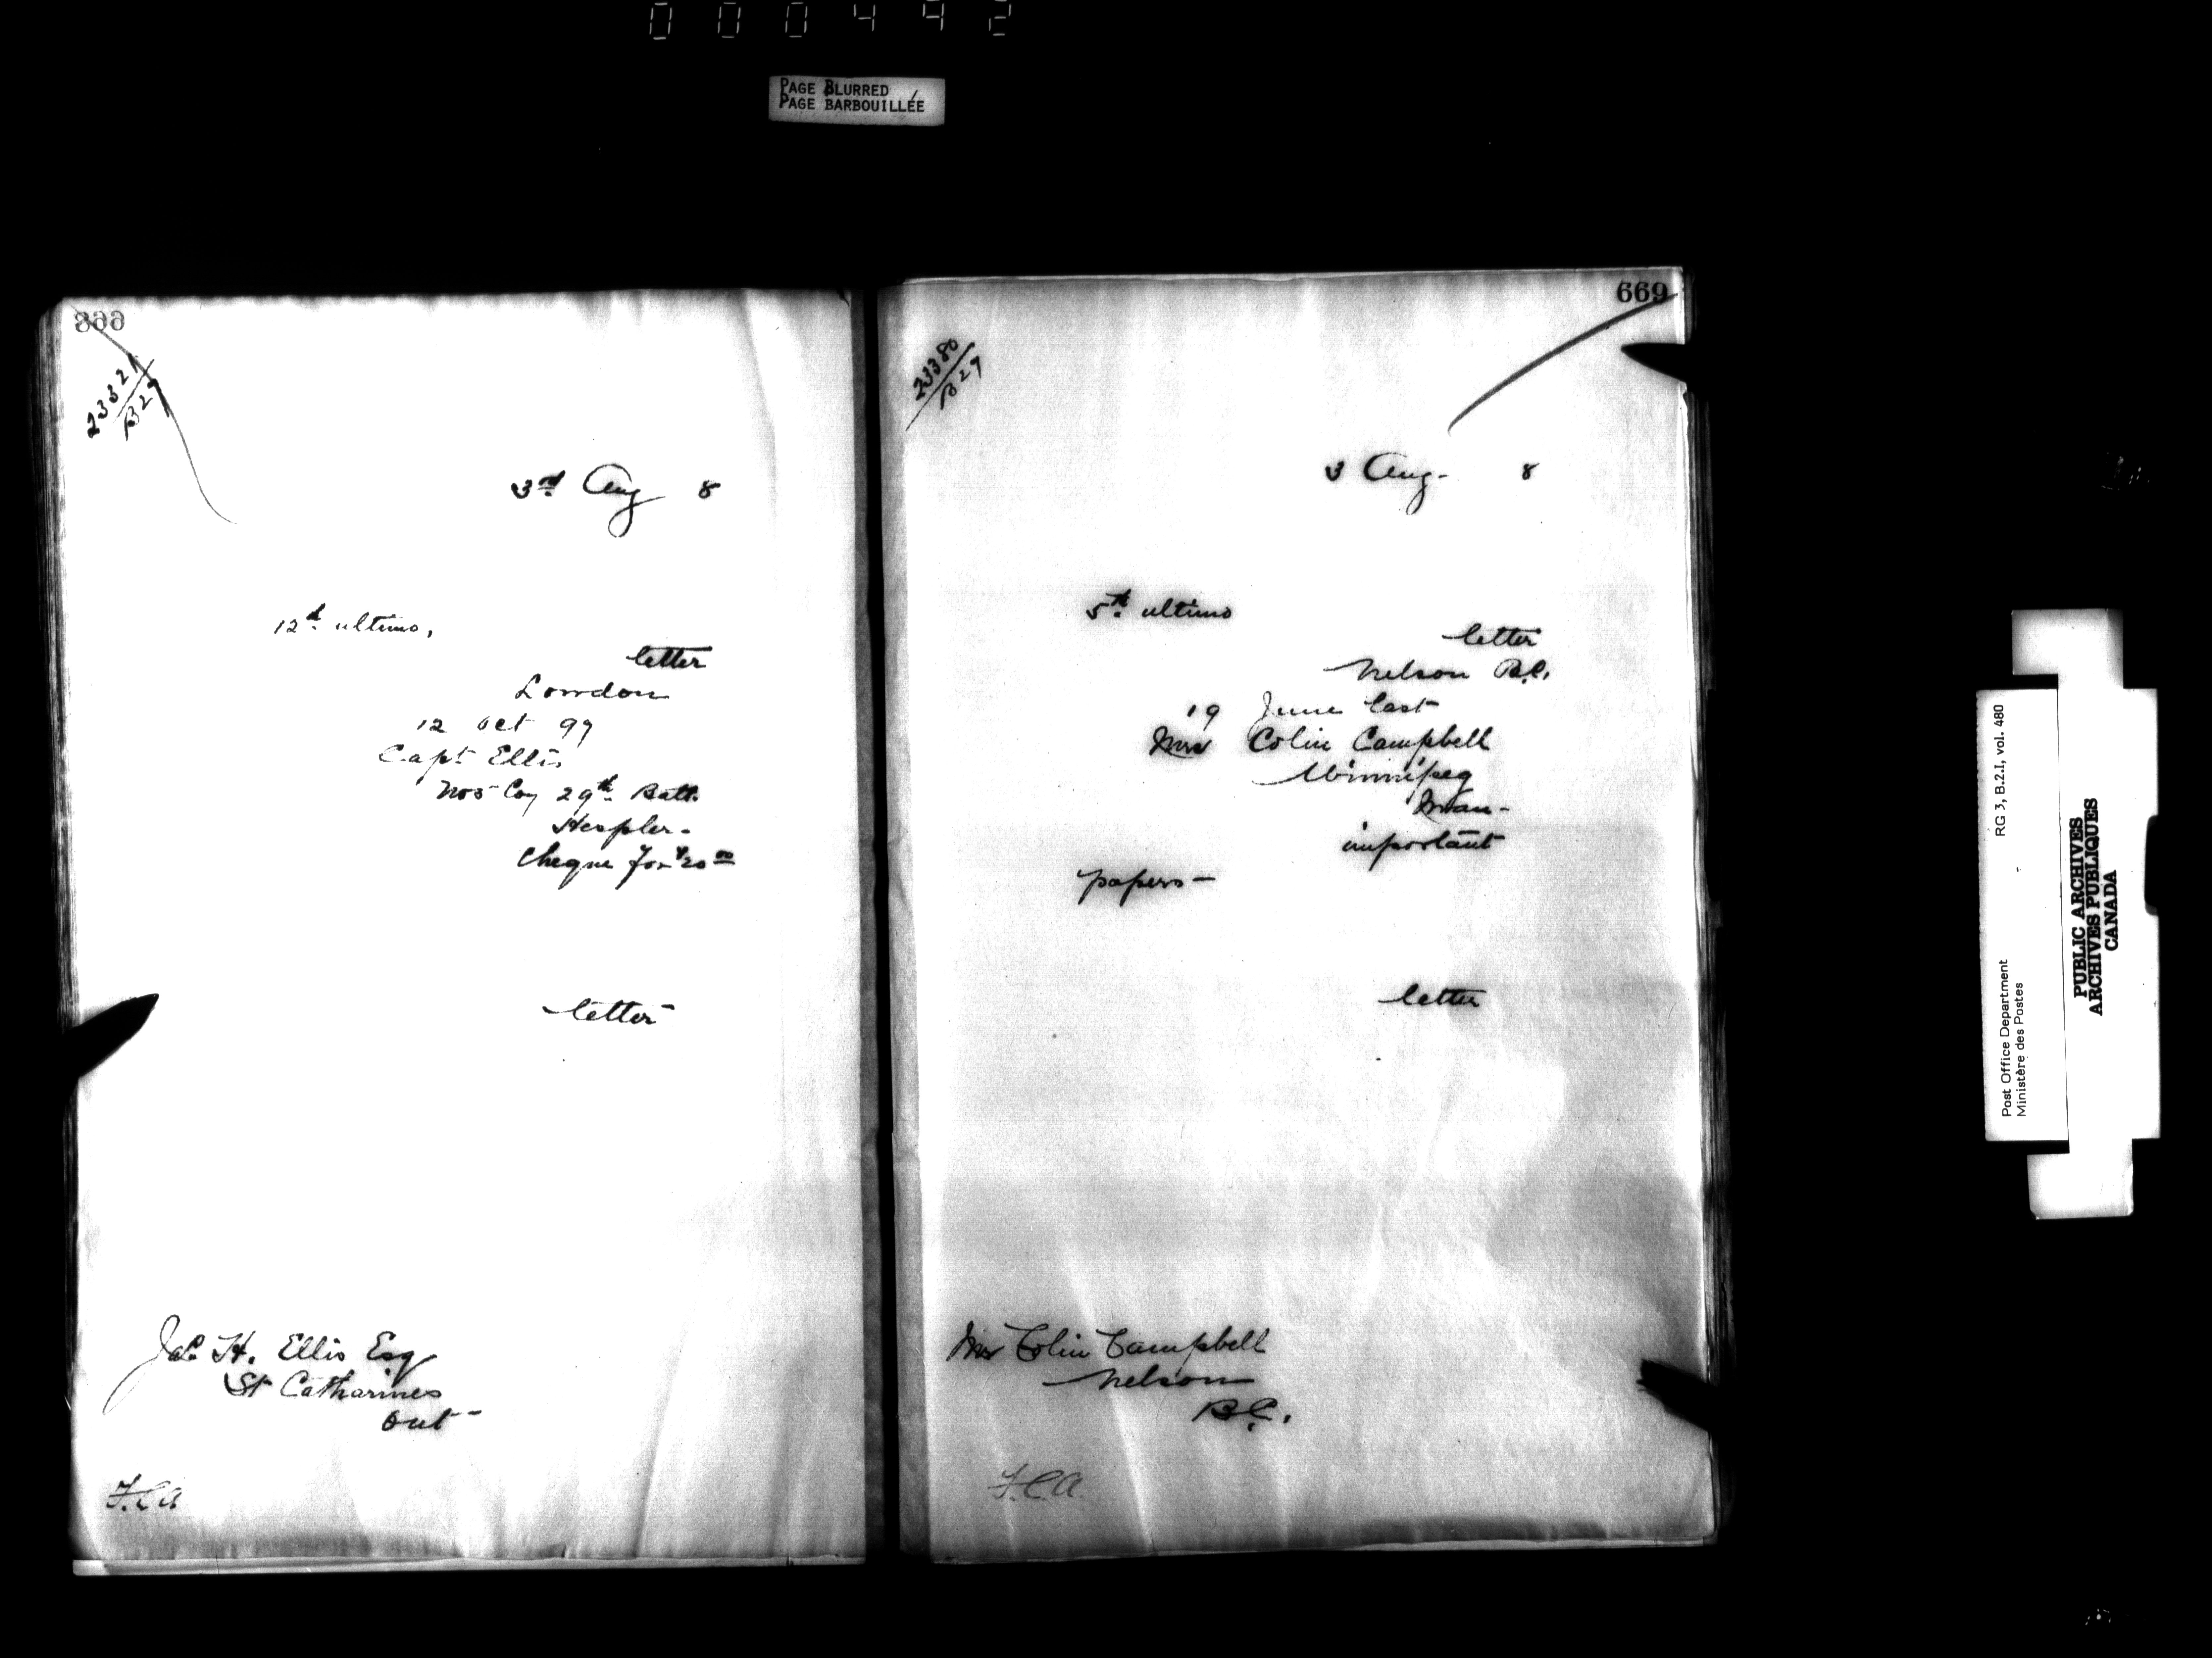 000442
PAGE BLURRED
PAGE BARBOUILLÉE
668
23821
B29
3rd Aug 8
12th ultimo,
letter
London
12 Oct 97
Capt Ellis
No 5 Coy 29th Batt.
Hespler-
Cheque for $20 00
letter
Jas H. Ellis Esq
St Catharines
Ont-
F.C.A
669
23380
B29
3 Aug- 8
5th ultimo
letter
Nelson B.C.
19 June last
Mrs Colin Campbell
Winnipeg
Man-
important
papers-
letter
Mrs Colin Campbell
Nelson
B.C.
F.C.A.
Post Office Department RG 3, B.2.I, vol. 480
Ministère des Postes -
PUBLIC ARCHIVES
ARCHIVES PUBLIQUES
CANADA